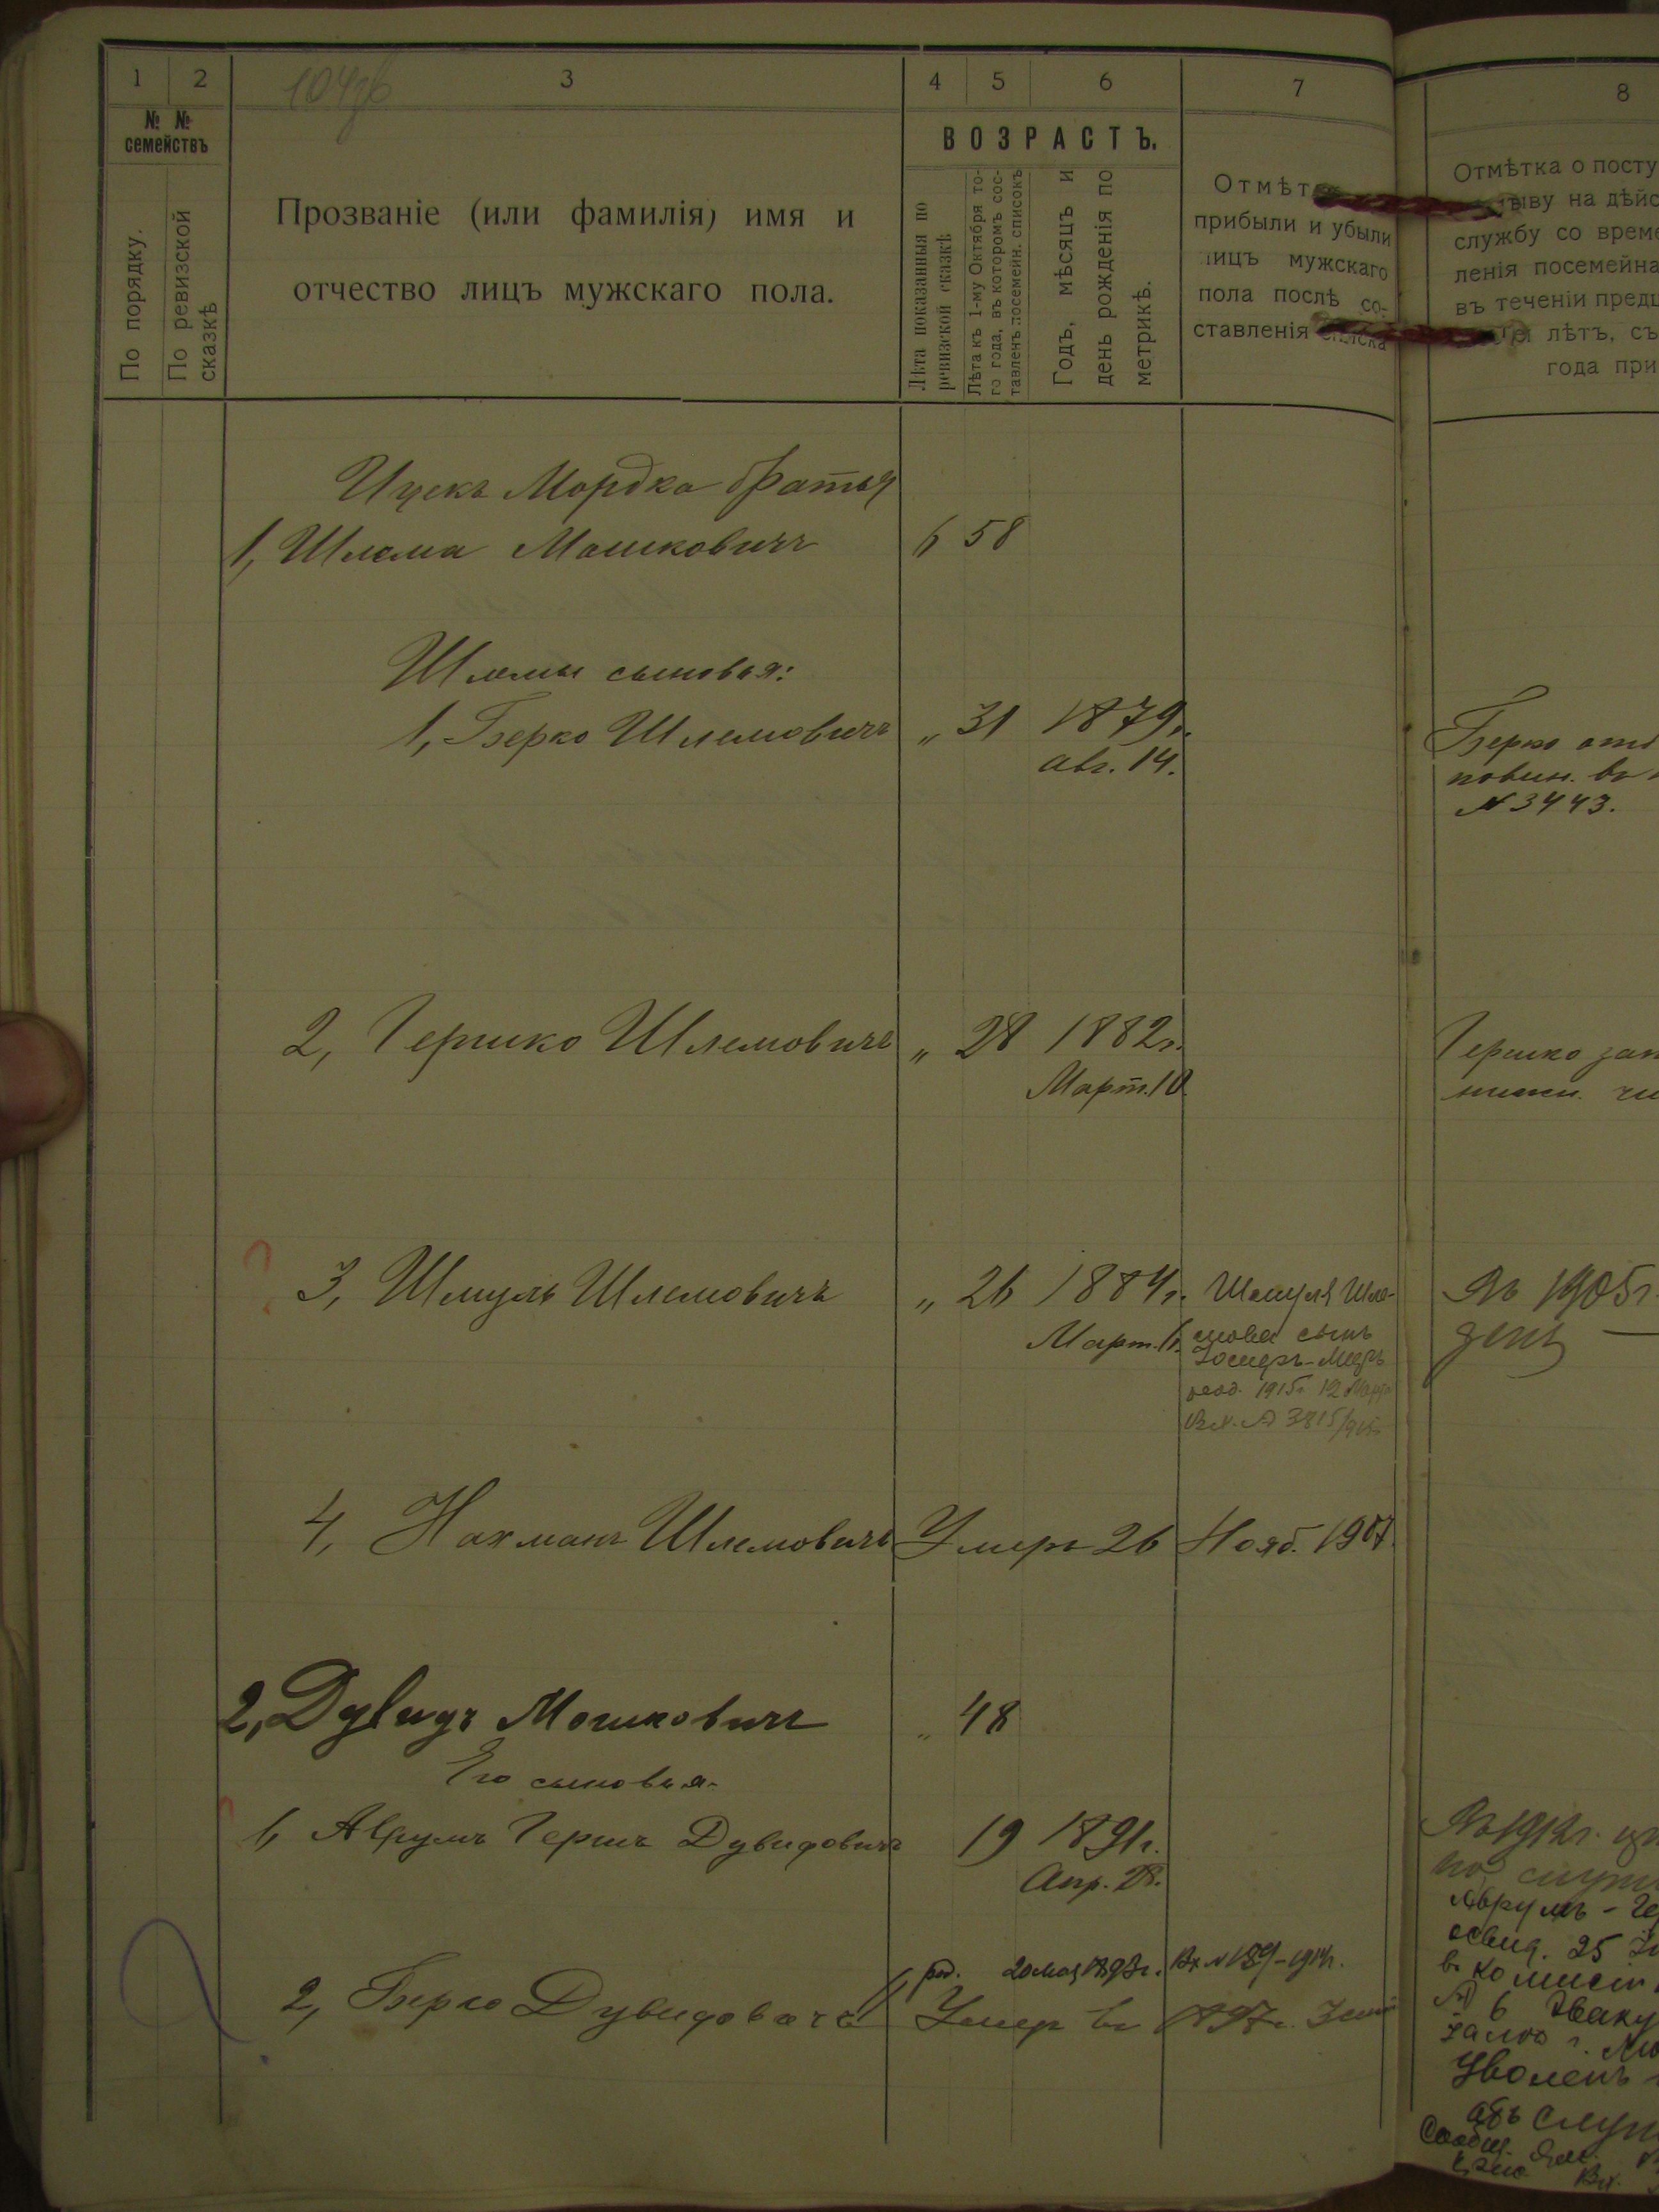 1 2 3 4 5 6 7 8
№ №
семействъ
По порядку.
По ревизской
сказкѣ
Прозваніе (или фамилія) имя и
отчество лицъ мужскаго пола.
ВОЗРАСТЪ.
Лѣта показанныя по
ревизской сказкѣ
Лѣта къ 1-му Октября то-
го года, въ которомъ сос-
тавленъ посемейн. списокъ
Годъ, мѣсяцъ и
день рожденія по
метрикѣ.
Отмѣт
прибыли и убыли
лицъ мужскаго
пола послѣ со-
ставленія списка
Отмѣтка о посту
ыву на дѣйс
службу со време
ленія посемейна
въ теченіи предш
лѣтъ, съ
года при
Ицекъ Мордка братья
1, Шлема Мошковичъ 6 58
Шлемы сыновья:
1, Берко Шлемовичъ „ 31 1879г.
Авг. 14.
Берко
повин. въ
№ 3443.
2, Гершко Шлемовичъ „ 28 1882г.
Март. 10.
Гершко зап
нижн. чи
3, Шмуль Шлемовичъ „ 26 1884г. Шмуля Шле-
Март. 6. мова сынъ
Іосифъ-Мееръ
род. 1915г 12 Марта
Вх. № 3815/915г
Въ 1905г.
день —
4, Нахманъ Шлемовичъ Умеръ 26 Нояб. 1907.
2, Дувидъ Мошковичъ „ 48
Его сыновья.
1, Аврумъ Гершъ Дувидовичъ 19 1891г.
Апр. 28.
Въ 1912г.
по
Аврумъ - Ге
освид. 25
въ комисіи
№ 6 Эваку
Уволенъ
объ служ
Сообщ.
Вх.
род. 20 мая 1893г. Вх № 189-1914г.
2, Берко Дувидовичъ Умер въ 1897г.